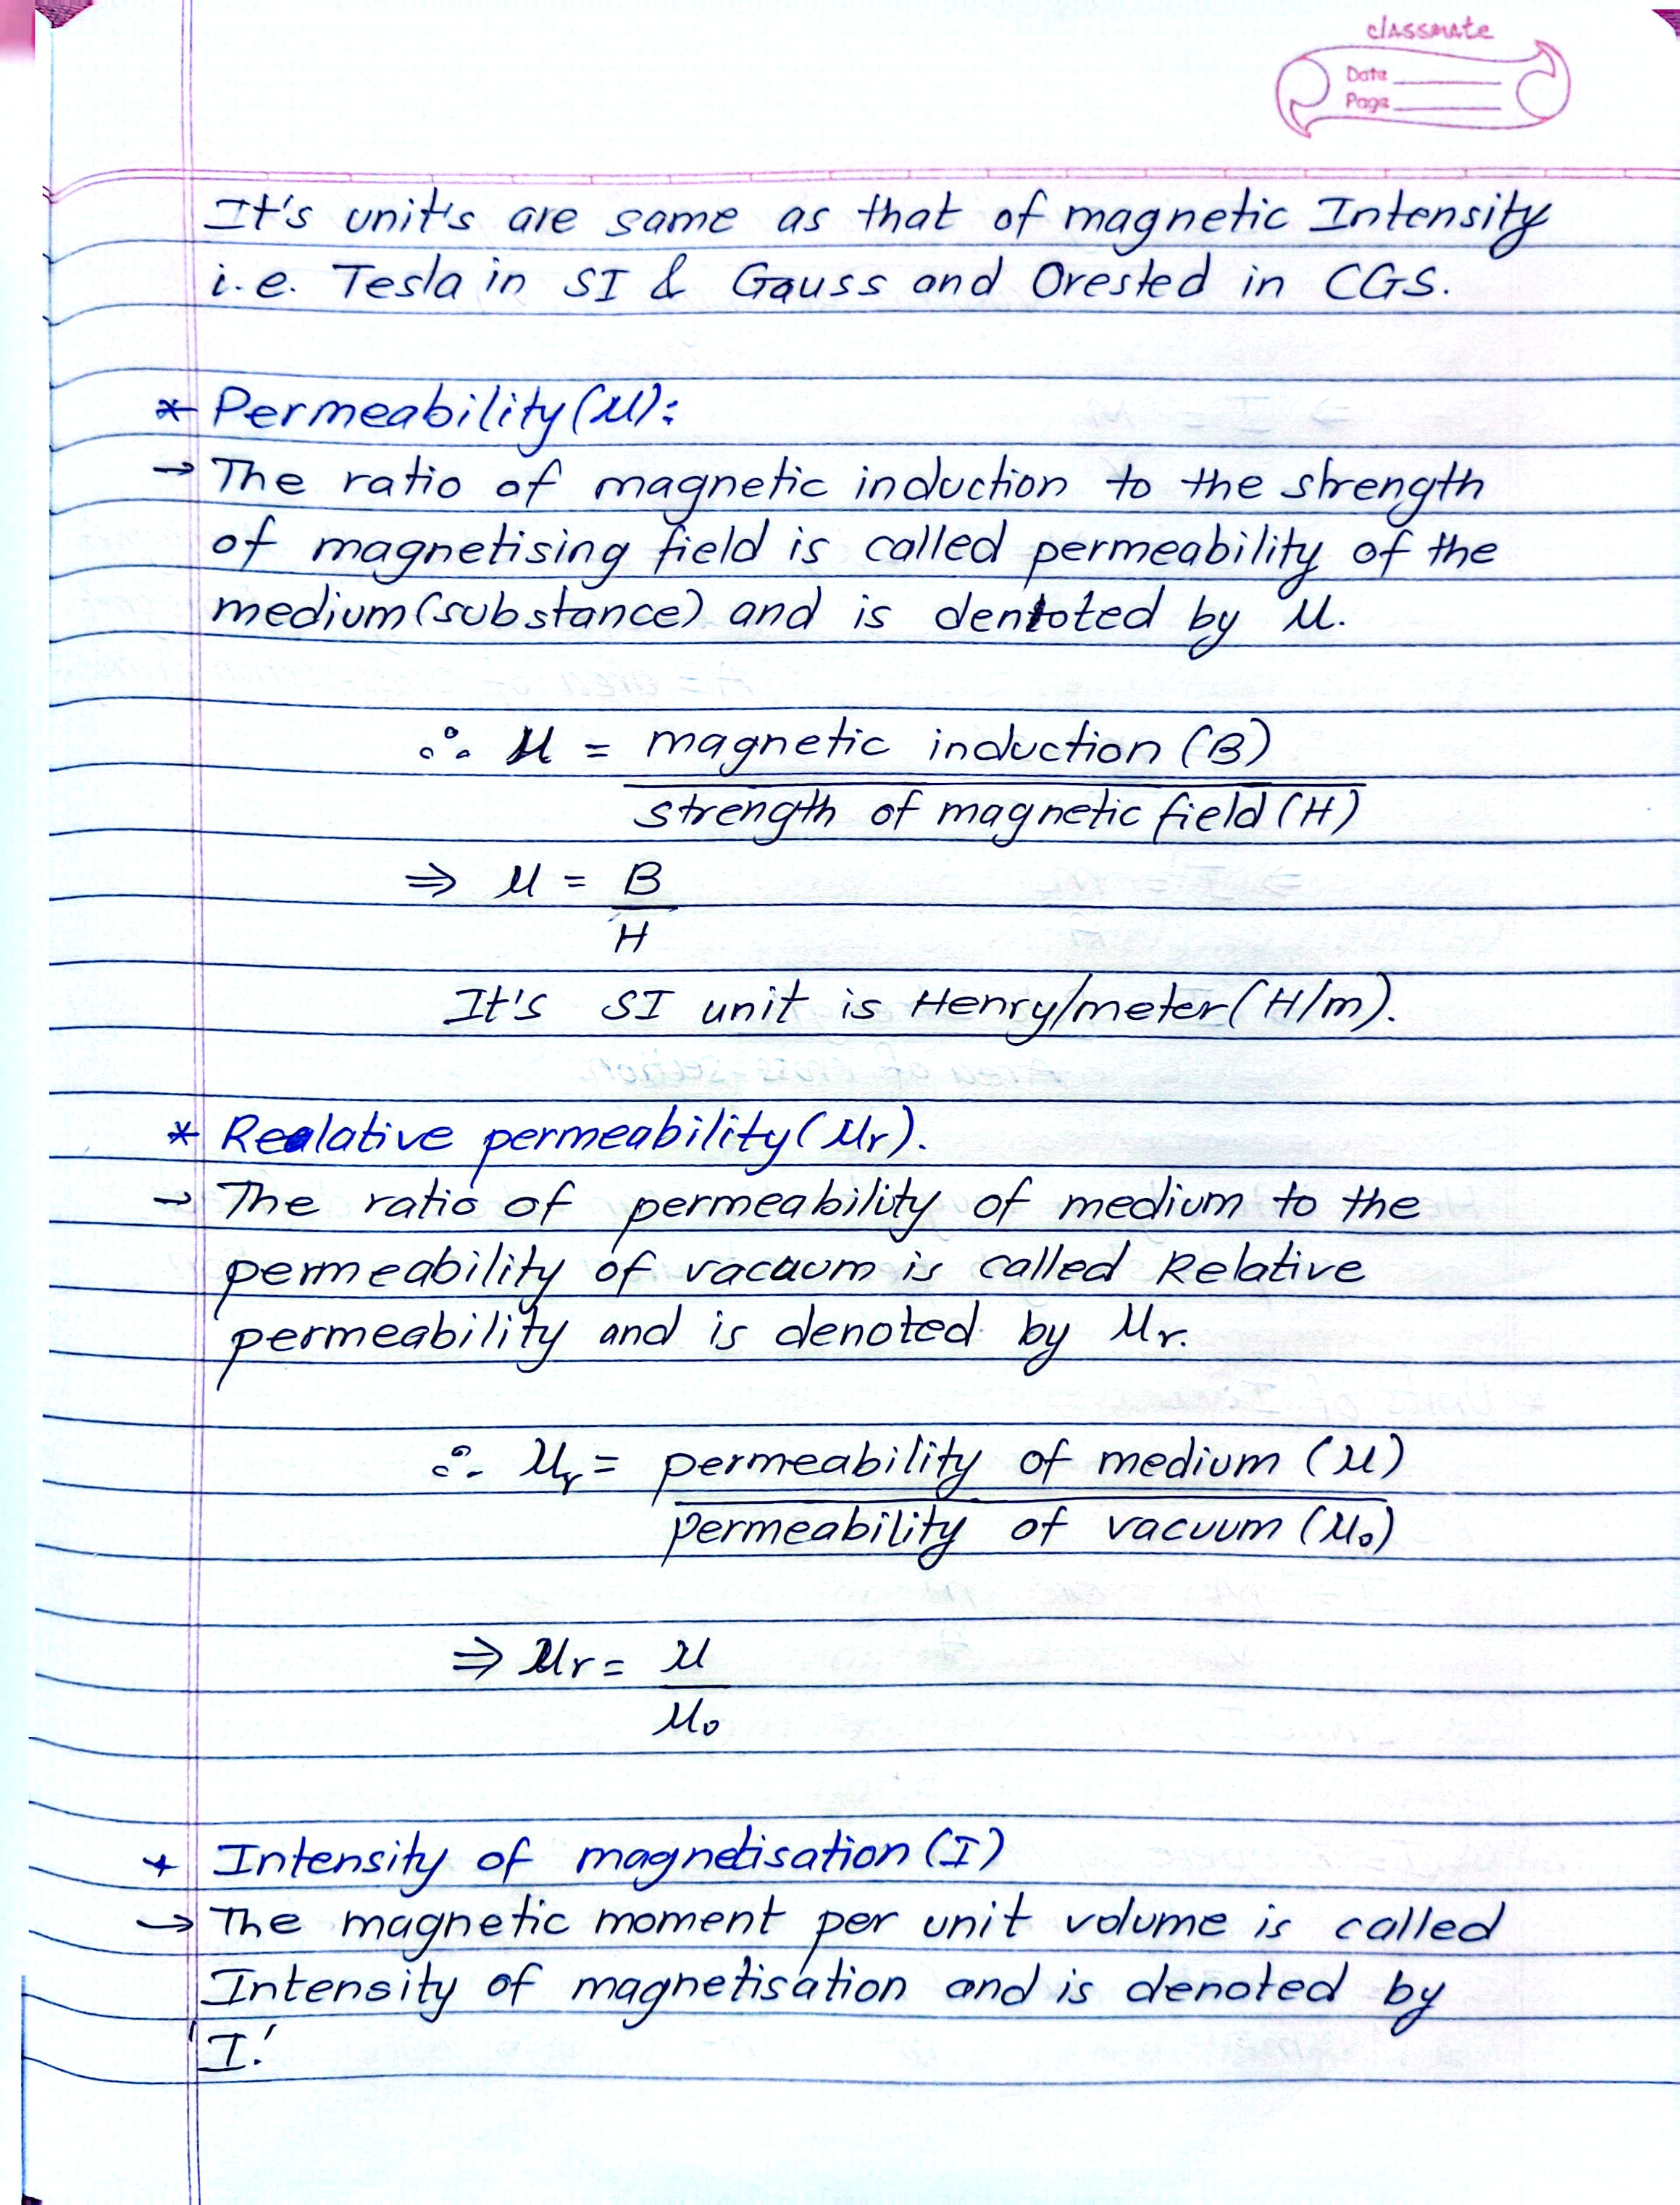 classmate
Date
Page
It's unit's are same as that of magnetic Intensity
i.e. Tesla in SI & Gauss and Orested in CGS.
* Permeability (μ):
→ The ratio of magnetic induction to the strength
of magnetising field is called permeability of the
medium (substance) and is dentoted by μ.
∴ μ = magnetic induction (B)
strength of magnetic field (H)
⇒ μ = B
H
It's SI unit is Henry/meter (H/m).
* Realative permeability (μr).
→ The ratio of permeability of medium to the
permeability of vacuum is called Relative
permeability and is denoted by μr.
∴ μr = permeability of medium (μ)
permeability of vacuum (μ₀)
⇒ μr = μ
μ₀
* Intensity of magnetisation (I)
→ The magnetic moment per unit volume is called
Intensity of magnetisation and is denoted by
'I.'